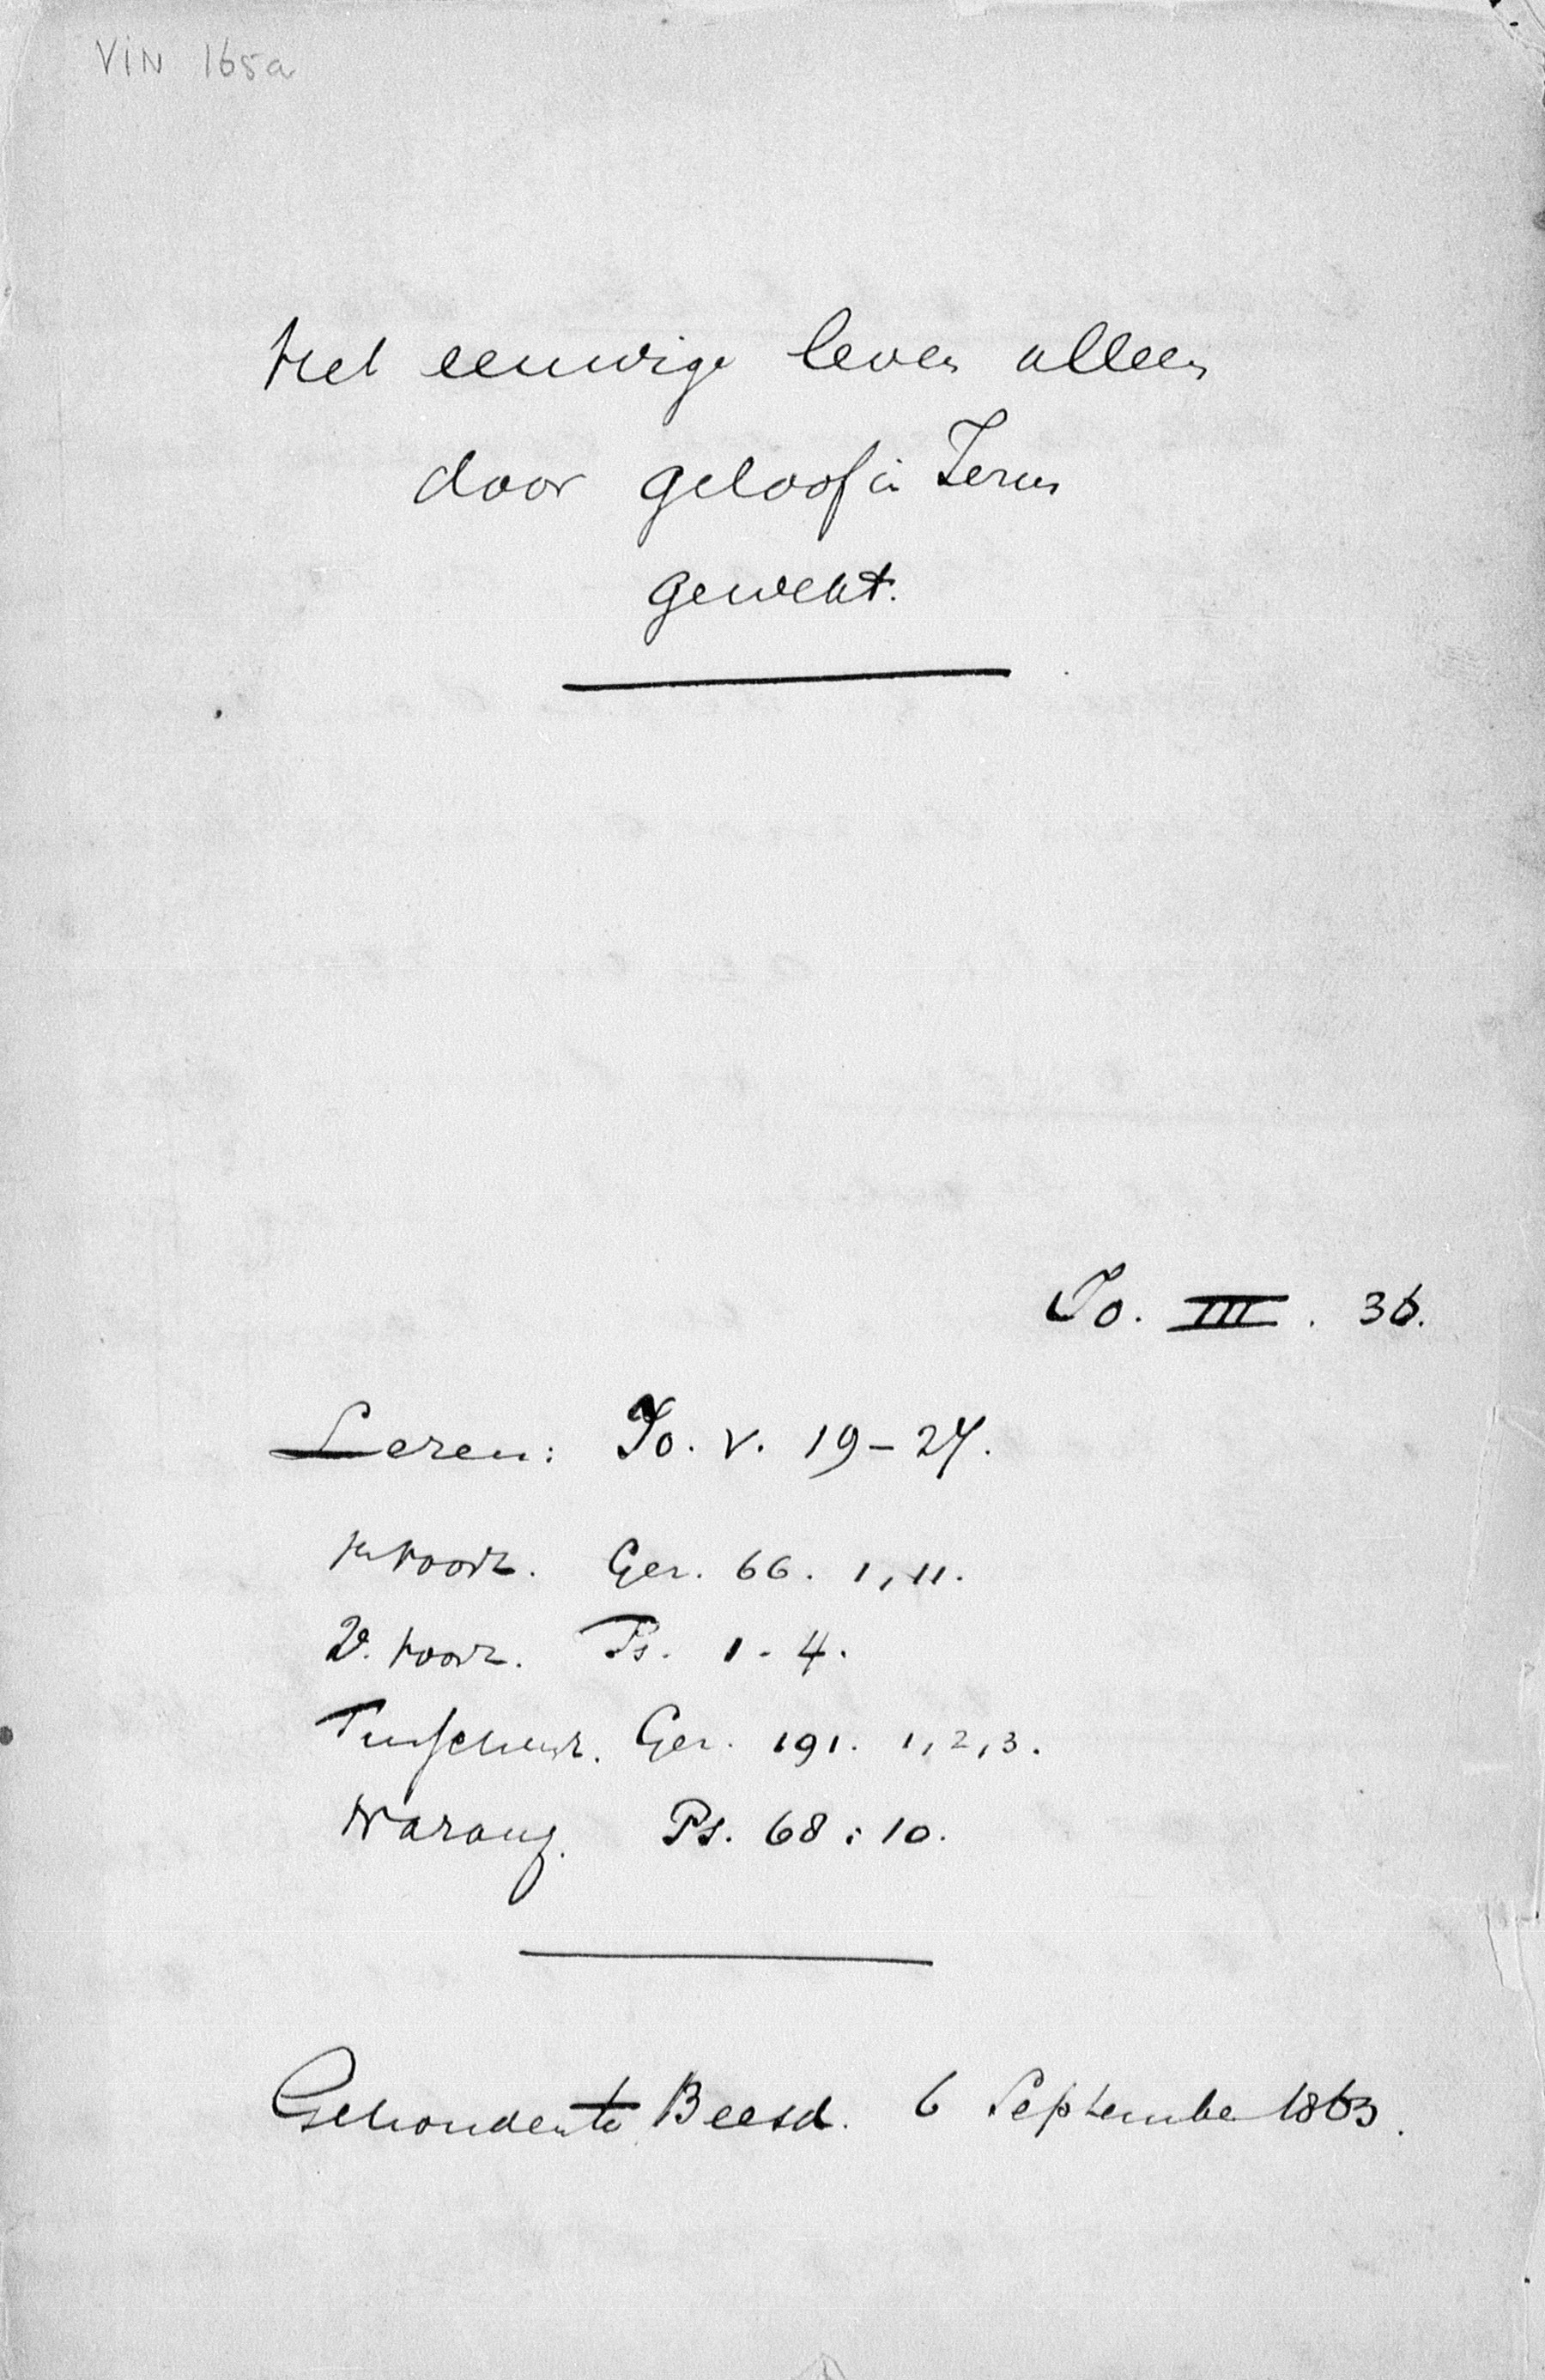 VIN 165a
Het eeuwige leven alleen
door geloof in Jezus
gewekt.
Jo. III. 36.
Lezen: Jo. V. 19-24.
voorz. Gez. 66. 1, 11.
2e. voorz. Ps. 1-4.
Tusschenz. Gez. 191. 1, 2, 3.
Nazang. Ps. 68:10.
Gehouden te Beesd. 6 September 1863.